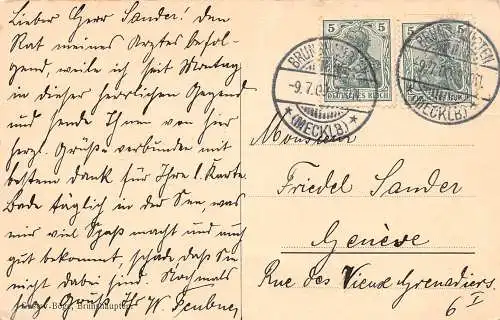 Lieber Herr Sander! den
Rat meines Arztes befol-
gend, weile ich seit Montag
in dieser herrlichen Gegend
und sende Ihnen von hier
herzl. Grüße verbunden mit
bestem Dank für Ihre l. Karte.
Bade täglich in der See, was
mir viel Spaß macht und auch
gut bekommt, schade daß Sie
nicht dabei sind. Nochmals
herzl. Gruß Ihr W. Teubner
Brunshaupten.
5 5
DEUTSCHES REICH
BRUNSHAUPTEN
-9.7.09
*(MECKLB.)*
BRUNSHAUPTEN
-9.7.
*(MECKLB.)*
Monsieur
Friedel Sander
Genève
Rue des Vieux Grenadiers.
6 I